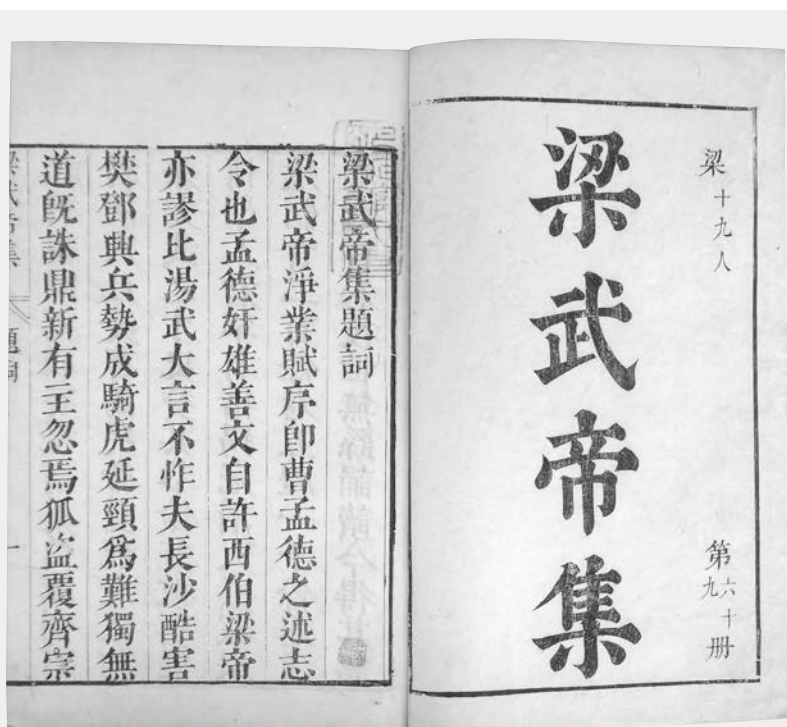 梁十九人
第六十九册
梁武帝集
梁武帝集題詞
梁武帝淨業賦序卽曹孟德之述志
令也孟德奸雄善文自許西伯梁帝
亦謬比湯武大言不怍夫長沙酷害
樊鄧興兵勢成騎虎延頸爲難獨無
道旣誅鼎新有主忽焉狐盜覆齊宗